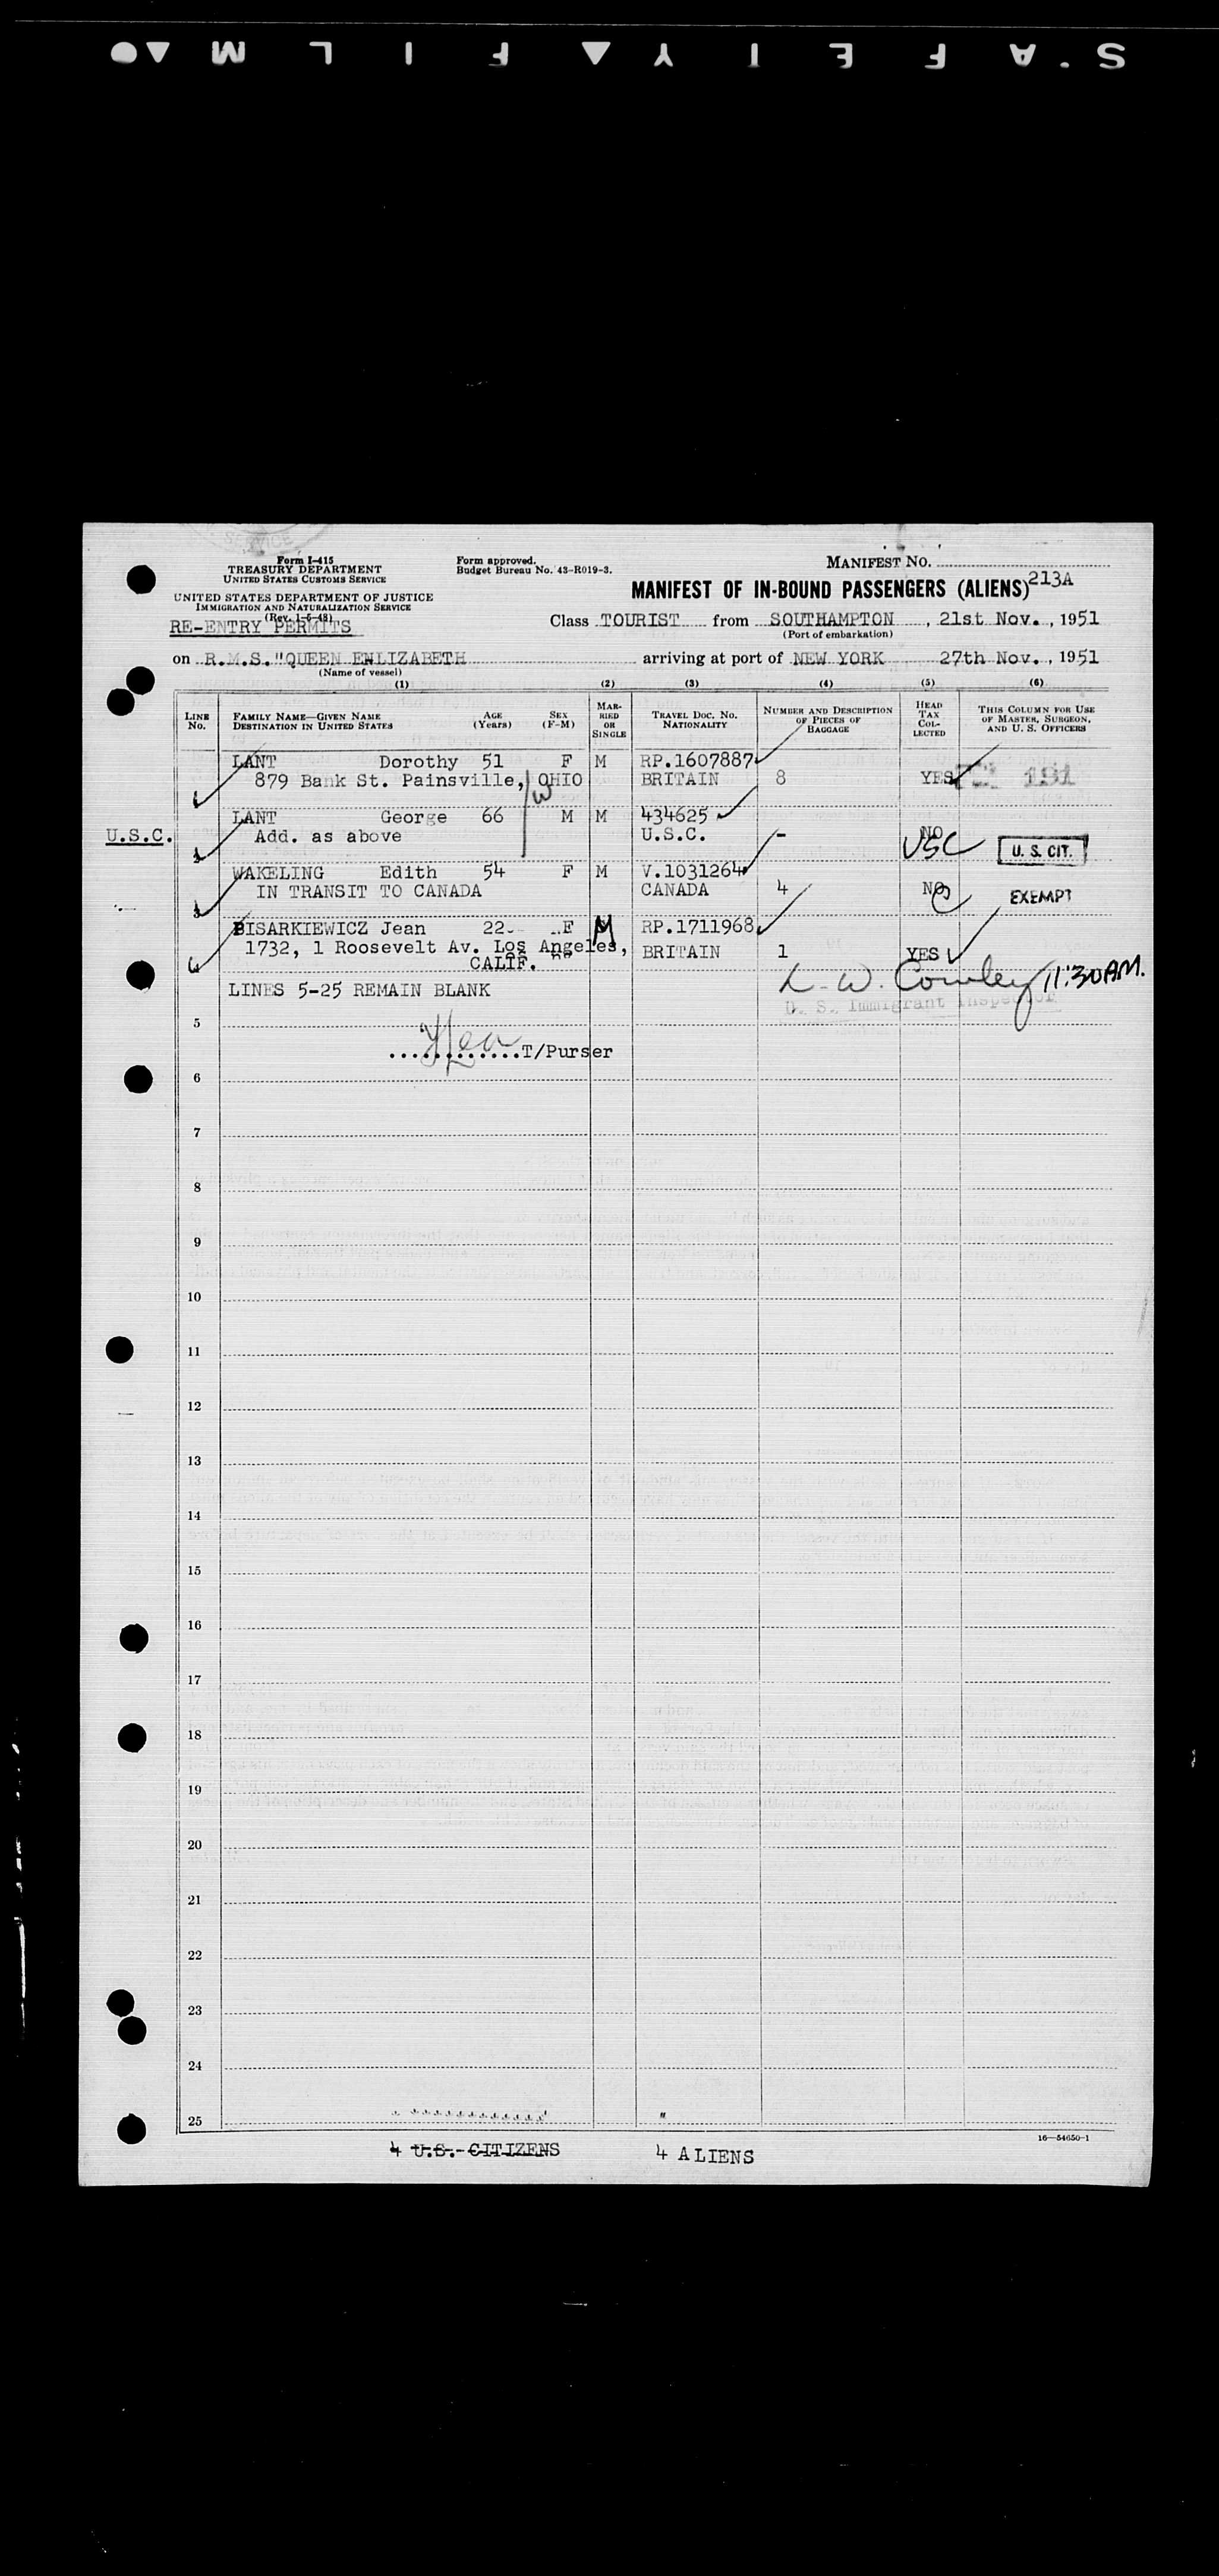 S.A F E T Y ▲ F I L M ▲ ●
SERVICE
Form I-415
TREASURY DEPARTMENT
UNITED STATES CUSTOMS SERVICE
UNITED STATES DEPARTMENT OF JUSTICE
IMMIGRATION AND NATURALIZATION SERVICE
(Rev. 1-5-48)
RE-ENTRY PERMITS
Form approved.
Budget Bureau No. 43-R019-3.
MANIFEST NO.
MANIFEST OF IN-BOUND PASSENGERS (ALIENS) 213A
Class TOURIST from SOUTHAMPTON, 21st Nov., 1951
(Port of embarkation)
on R.M.S."QUEEN ENLIZABETH arriving at port of NEW YORK 27th Nov., 1951
(Name of vessel)
(1) (2) (3) (4) (5) (6)
LINE No. FAMILY NAME—GIVEN NAME DESTINATION IN UNITED STATES AGE (Years) SEX (F-M) MARRIED OR SINGLE TRAVEL DOC. NO. NATIONALITY NUMBER AND DESCRIPTION OF PIECES OF BAGGAGE HEAD TAX COLLECTED THIS COLUMN FOR USE OF MASTER, SURGEON, AND U. S. OFFICERS
LANT Dorothy 51 F M RP.1607887
879 Bank St. Painsville, OHIO BRITAIN 8 YES 191
W
LANT George 66 M M 434625
U.S.C. Add. as above U.S.C. - NO USC U. S. CIT.
WAKELING Edith 54 F M V.1031264
3 IN TRANSIT TO CANADA CANADA 4 NO EXEMPT
BISARKIEWICZ Jean 22 F M RP.1711968
1732, 1 Roosevelt Av. Los Angeles, BRITAIN 1 YES
CALIF.
L. W. Cowley 11:30 AM.
U. S. Immigrant Inspector
LINES 5-25 REMAIN BLANK
5
............T/Purser
6
7
8
9
10
11
12
13
14
15
16
17
18
19
20
21
22
23
24
25
16—54650-1
4 U.S. CITIZENS 4 ALIENS